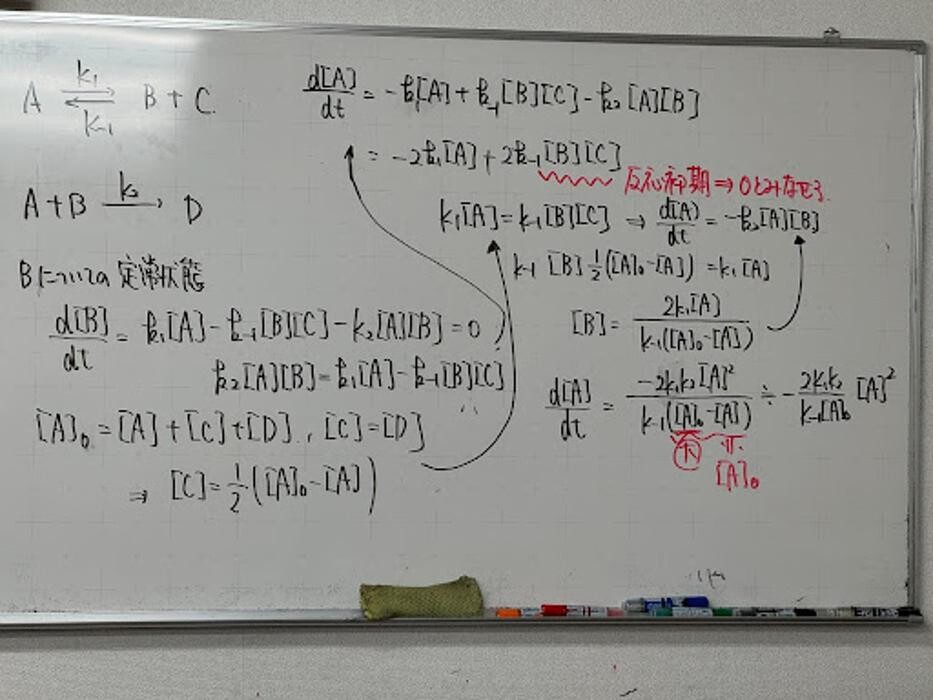 A ⇌ B + C
k₁
k₋₁
A + B → D
k₂
Bについての定常状態
d[B]/dt = k₁[A] - k₋₁[B][C] - k₂[A][B] = 0
k₂[A][B] = k₁[A] - k₋₁[B][C]
[A]₀ = [A] + [C] + [D], [C] = [D]
⇒ [C] = 1/2 ([A]₀ - [A])
d[A]/dt = -k₁[A] + k₋₁[B][C] - k₂[A][B]
= -2k₁[A] + 2k₋₁[B][C]
反応初期 ⇒ 0とみなせる
k₁[A] = k₋₁[B][C] → d[A]/dt = -k₂[A][B]
k₋₁[B] 1/2 ([A]₀ - [A]) = k₁[A]
[B] = 2k₁[A] / k₋₁([A]₀ - [A])
d[A]/dt = -2k₁k₂[A]² / k₋₁([A]₀ - [A]) ≒ - 2k₁k₂ / k₋₁[A]₀ [A]²
大 小
[A]₀